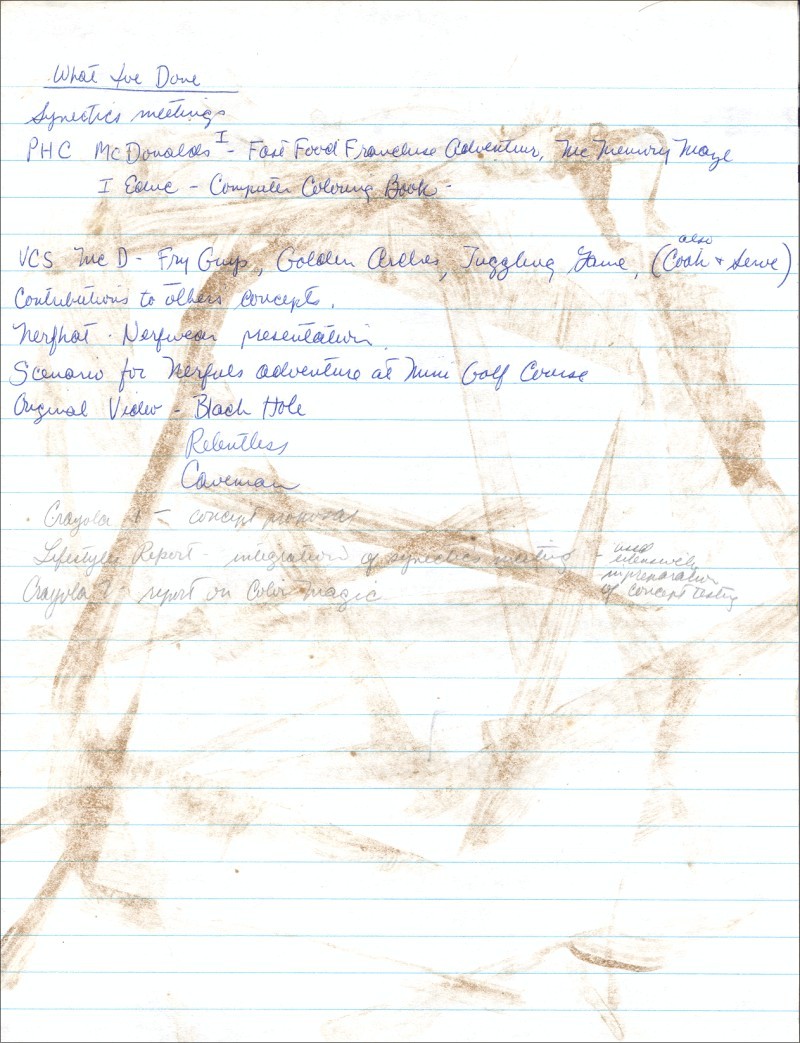 What I've Done
Synectics meetings
PHC McDonalds I - Fast Food Franchise Adventure, Mc Memory Maze
I Educ - Computer Coloring Book -
also
VCS Mc D - Fry Guys, Golden Arches, Juggling Game, (Cook + Serve)
Contributions to others concepts.
Nerfhat - Nerfwear presentation
Scenario for Nerfuls adventure at Mini Golf Course
Original Video - Black Hole
Relentless
Caveman
Crayola I - concept proposal
Lifestyles Report - integration of synectics meeting - used
extensively
in preparation
of concept testing
Crayola - report on Color Magic